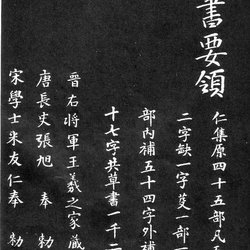 書要領
仁集原四十五部凡五
二字缺一字芟一部一
部內補五十四字外補
十七字共草書一千二
晉右將軍王羲之家藏
唐長史張旭奉勅
宋學士米友仁奉勅